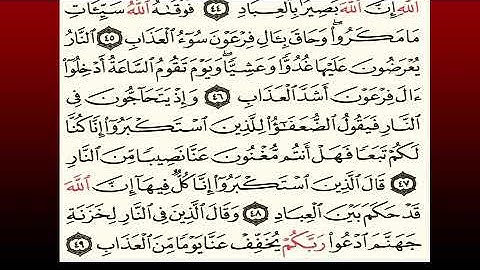 ٱللَّهِ إِنَّ ٱللَّهَ بَصِيرٌۢ بِٱلۡعِبَادِ ٤٤ فَوَقَىٰهُ ٱللَّهُ سَيِّـَٔاتِ
مَا مَكَرُواْۖ وَحَاقَ بِـَٔالِ فِرۡعَوۡنَ سُوٓءُ ٱلۡعَذَابِ ٤٥ ٱلنَّارُ
يُعۡرَضُونَ عَلَيۡهَا غُدُوّٗا وَعَشِيّٗاۖ وَيَوۡمَ تَقُومُ ٱلسَّاعَةُ أَدۡخِلُوٓاْ
ءَالَ فِرۡعَوۡنَ أَشَدَّ ٱلۡعَذَابِ ٤٦ وَإِذۡ يَتَحَآجُّونَ فِي
ٱلنَّارِ فَيَقُولُ ٱلضُّعَفَـٰٓؤُاْ لِلَّذِينَ ٱسۡتَكۡبَرُوٓاْ إِنَّا كُنَّا
لَكُمۡ تَبَعٗا فَهَلۡ أَنتُم مُّغۡنُونَ عَنَّا نَصِيبٗا مِّنَ ٱلنَّارِ
٤٧ قَالَ ٱلَّذِينَ ٱسۡتَكۡبَرُوٓاْ إِنَّا كُلّٞ فِيهَآ إِنَّ ٱللَّهَ
قَدۡ حَكَمَ بَيۡنَ ٱلۡعِبَادِ ٤٨ وَقَالَ ٱلَّذِينَ فِي ٱلنَّارِ لِخَزَنَةِ
جَهَنَّمَ ٱدۡعُواْ رَبَّكُمۡ يُخَفِّفۡ عَنَّا يَوۡمٗا مِّنَ ٱلۡعَذَابِ ٤٩